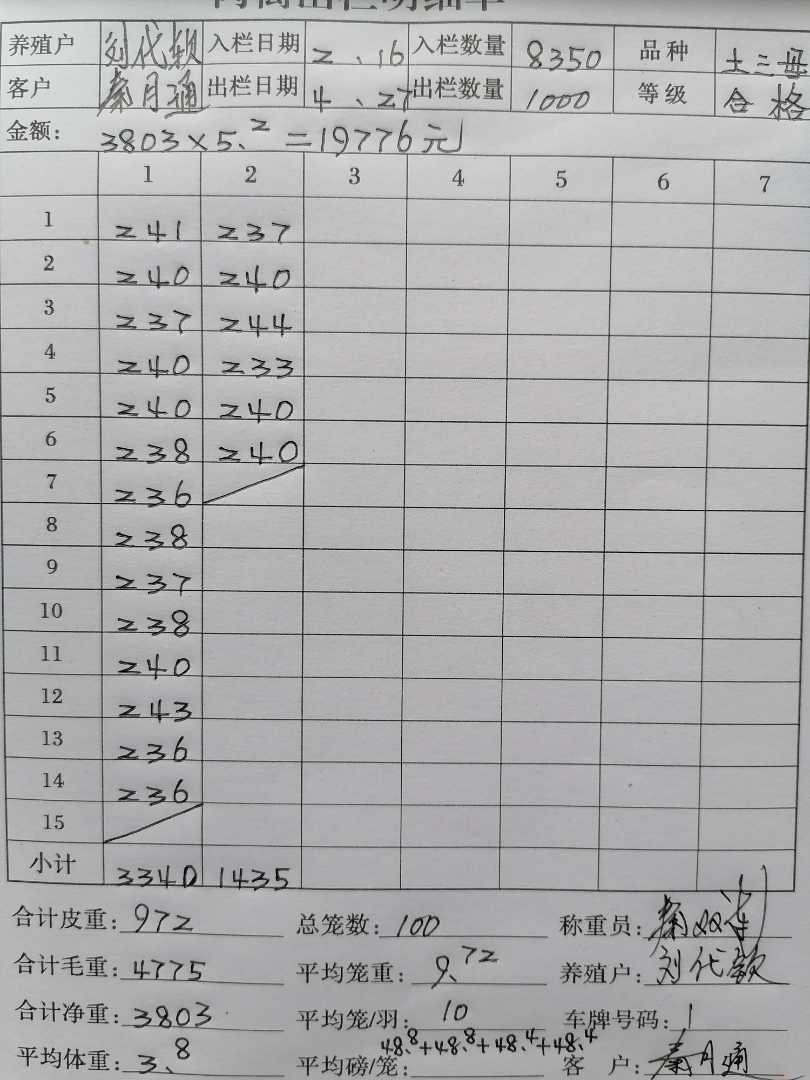 肉禽出栏明细单
养殖户 刘代款 入栏日期 2、16 入栏数量 8350 品种 土三母
客户 秦月通 出栏日期 4、27 出栏数量 1000 等级 合格
金额: 3803×5.2=19776元
1 2 3 4 5 6 7
1 241 237
2 240 240
3 237 244
4 240 233
5 240 240
6 238 240
7 236
8 238
9 237
10 238
11 240
12 243
13 236
14 236
15
小计 3340 1435
合计皮重: 972 总笼数: 100 称重员:
合计毛重: 4775 平均笼重: 9.72 养殖户: 刘代款
合计净重: 3803 平均笼/羽: 10 车牌号码: 1
平均体重: 3.8 平均磅/笼: 48.8+48.8+48.4+48.4 客 户: 秦月通